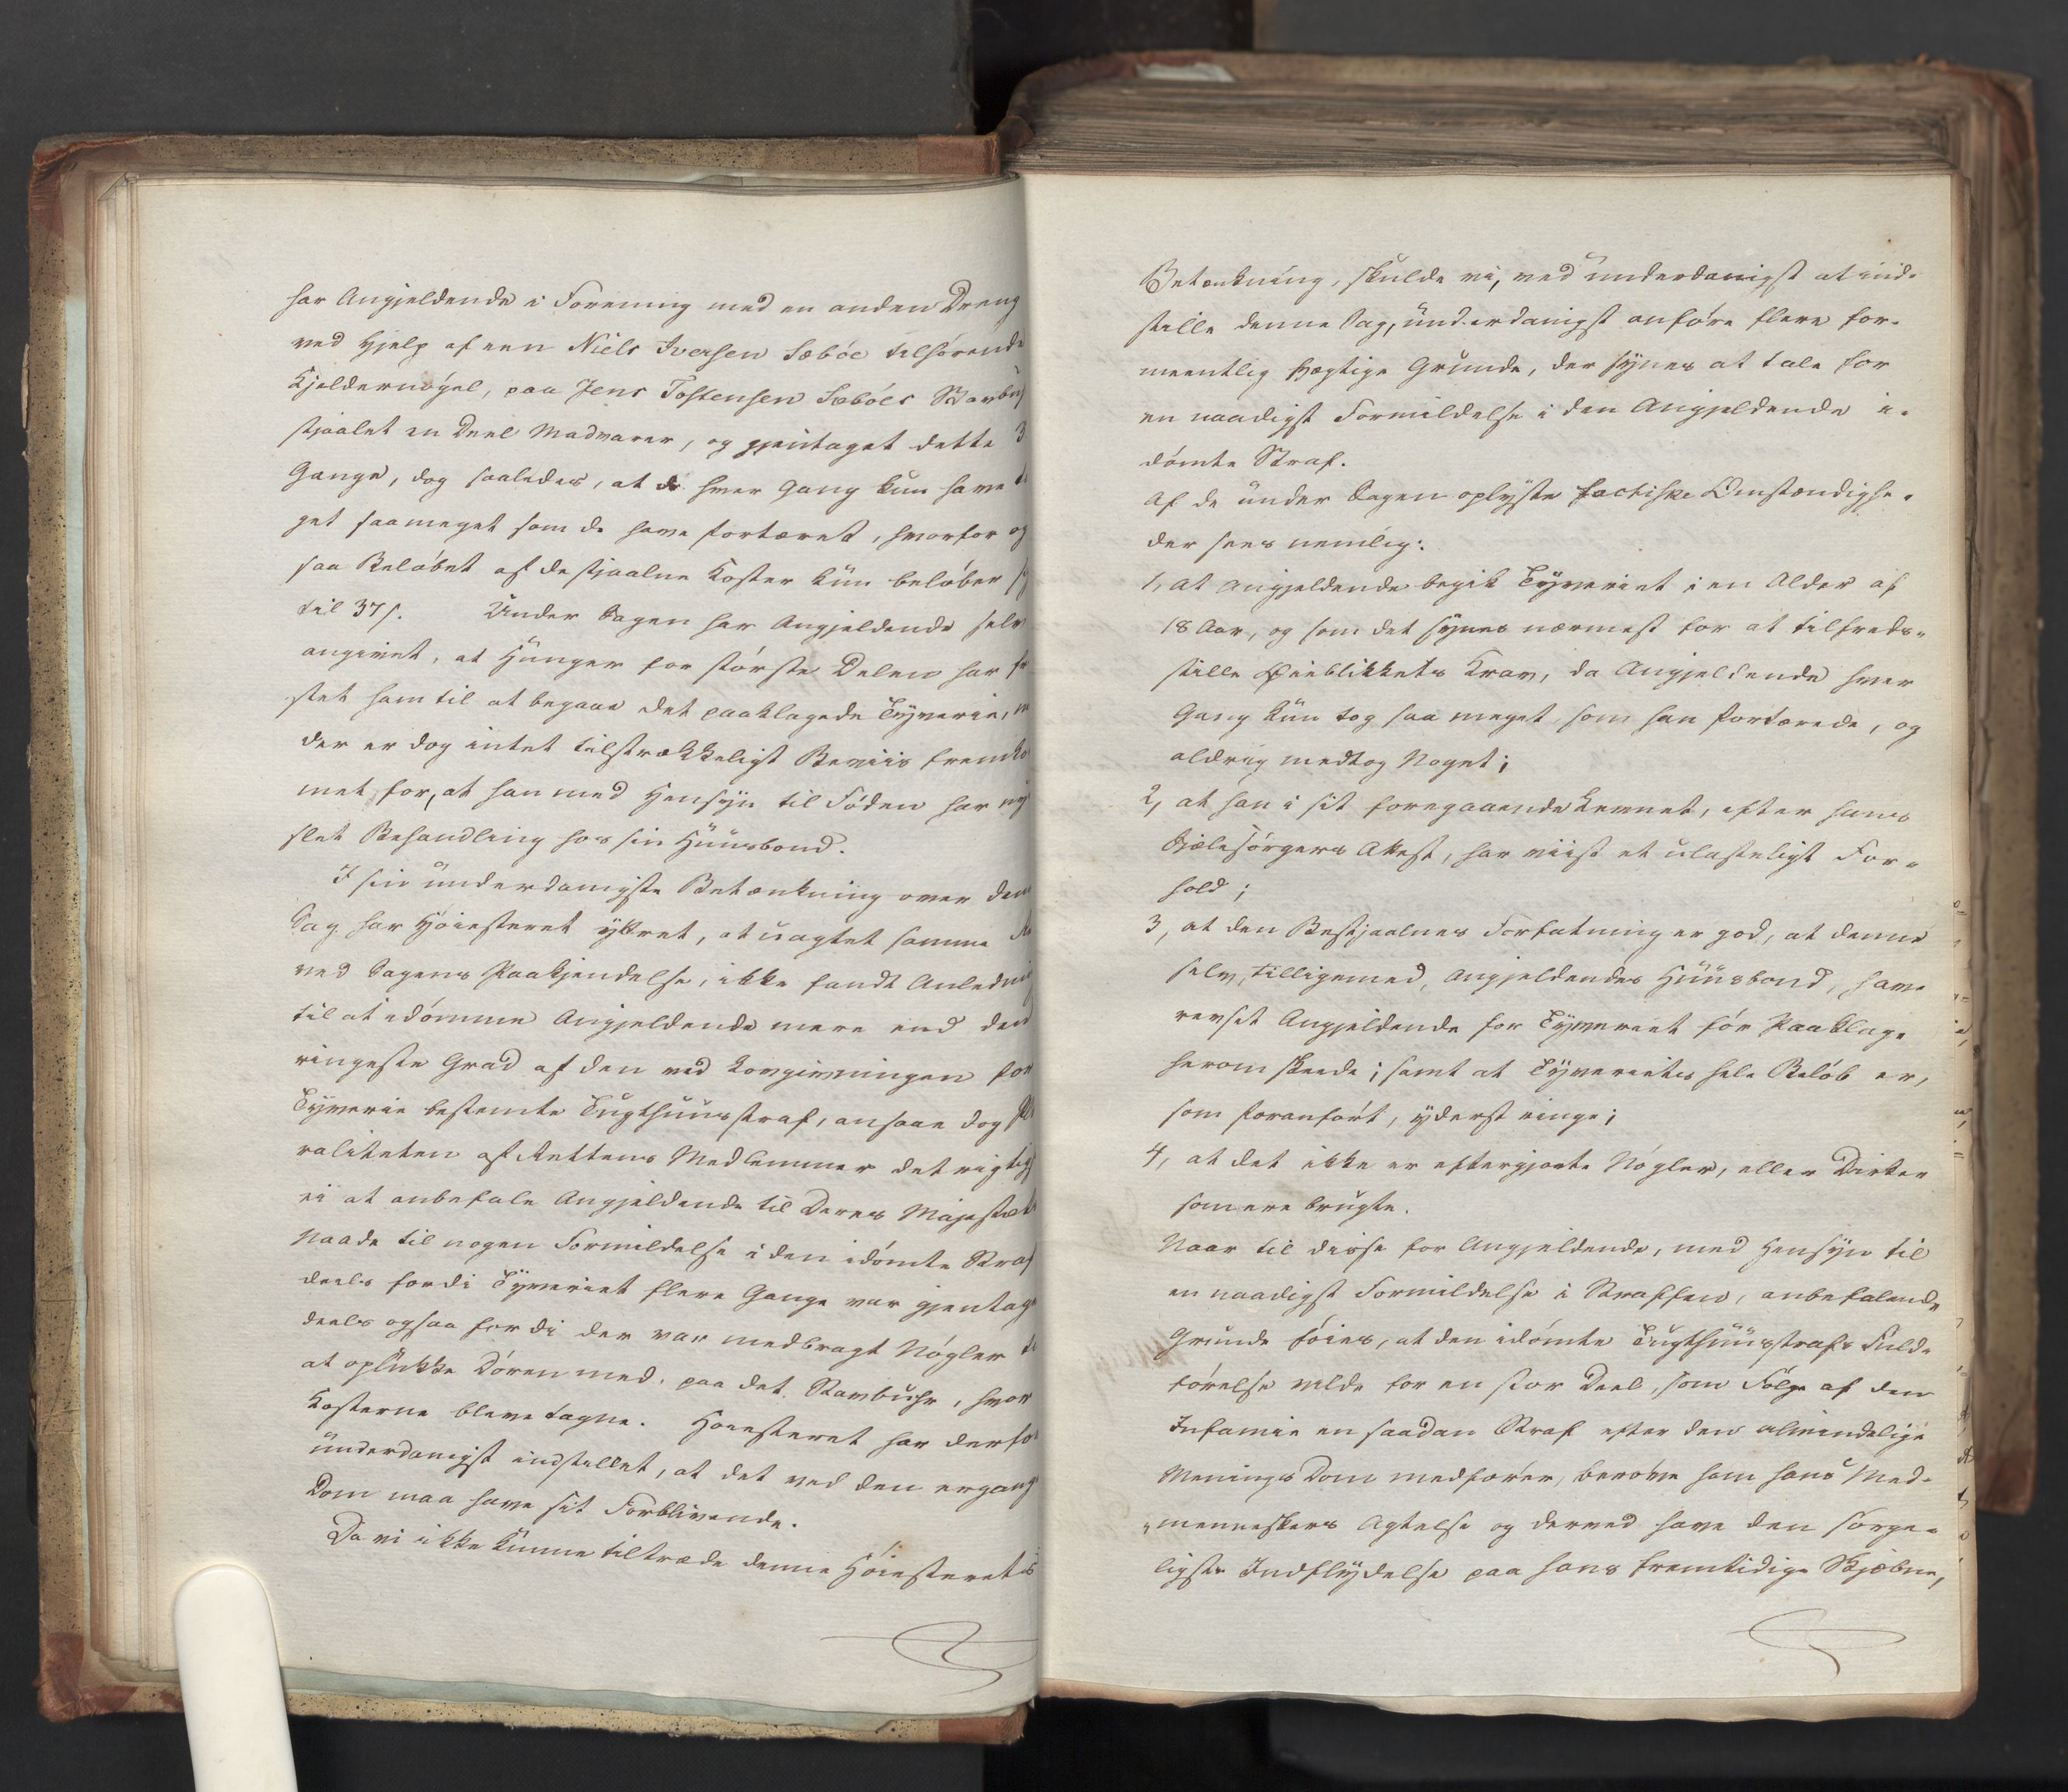 har Angjeldende i Forening med en anden Dreng
ved Hjelp af een Niels Iversen Sæbøe tilhørende
Kjeldernøgel, paa Jens Tostensen Sæbøes Stavbuhr
stjaalet en Deel Madvarer, og gjentaget dette 3
Gange, dog saaledes, at de hver Gang kun have ta
get saameget som de have fortæret, hvorfor og
saa Beløbet af de stjaalne Koster kun beløber sig
til 37 s. Under Sagen har Angjeldende selv
angivet, at Hunger for største Delen har fr
stet ham til at begaae det paaklagede Tyverie, m
der er dog intet tilstrækkeligt Beviis fremko
met for, at han med Hensyn til Føden har ny
slet Behandling hos sin Huusbond.
I sin underdanigste Betænkning over den
Sag har Høiesteret yttret, at uagtet samme
ved Sagens Paakjendelse, ikke fandt Anledni
til at idømme Angjeldende mere end den
ringeste Grad af den ved Lovgivningen for
Tyverie bestemte Tugthuusstraf, ansaae dog Plu
raliteten af Rettens Medlemmer det rigtigs
ei at anbefale Angjeldende til Deres Majestæts
Naade til nogen Formildelse i den idømte Straf
deels fordi Tyveriet flere Gange var gjentage
deels ogsaa fordi der var medbragt Nøgler ti
at oplukke Døren med paa det Stavbuhr, hvor
Kosterne bleve tagne. Høiesteret har derfo
underdanigst indstillet, at det ved den ergang
Dom maa have sit Forblivende.
Da vi ikke kunne tiltræde denne Høiesterets
Betænkning, skulde vi, ved underdanigst at ind-
stille denne Sag, underdanigst anføre flere for-
meentlig vægtige Grunde, der synes at tale for
en naadigst Formildelse i den Angjeldende i-
dømte Straf.
Af de under Sagen oplyste factiske Omstændighe-
der sees nemlig:
1, at Angjeldende begik Tyveriet i en Alder af
18 Aar, og som det synes nærmest for at tilfreds-
stille Øieblikkets Krav, da Angjeldende hver
Gang kun tog saa meget som han fortærede, og
aldrig medtog Noget;
2, at han i sit foregaaende Levnet, efter hans
Sjælesørgers Attest, har viist et ulasteligt For-
hold;
3, at den Bestjaalnes Forfatning er god, at denne
selv, tilligemed Angjeldendes Huusbond, have
revset Angjeldende for Tyveriet før Paaklage
herom skeede; samt at Tyveriets hele Beløb er,
som foranført, yderst ringe;
4, at det ikke er eftergjorte Nøgler, eller Dirker
som ere brugte.
Naar til disse for Angjeldende, med Hensyn til
en naadigst Formildelse i Straffen, anbefalende
Grunde føies, at den idømte Tugthuusstrafs Fuld-
førelse vilde for en stor Deel, som Følge af den
Infamie en saadan Straf efter den almindelige
Menings Dom medfører, berøve ham hans Med-
menneskers Agtelse og derved have den sørge-
ligste Indflydelse paa hans fremtidige Skjæbne,